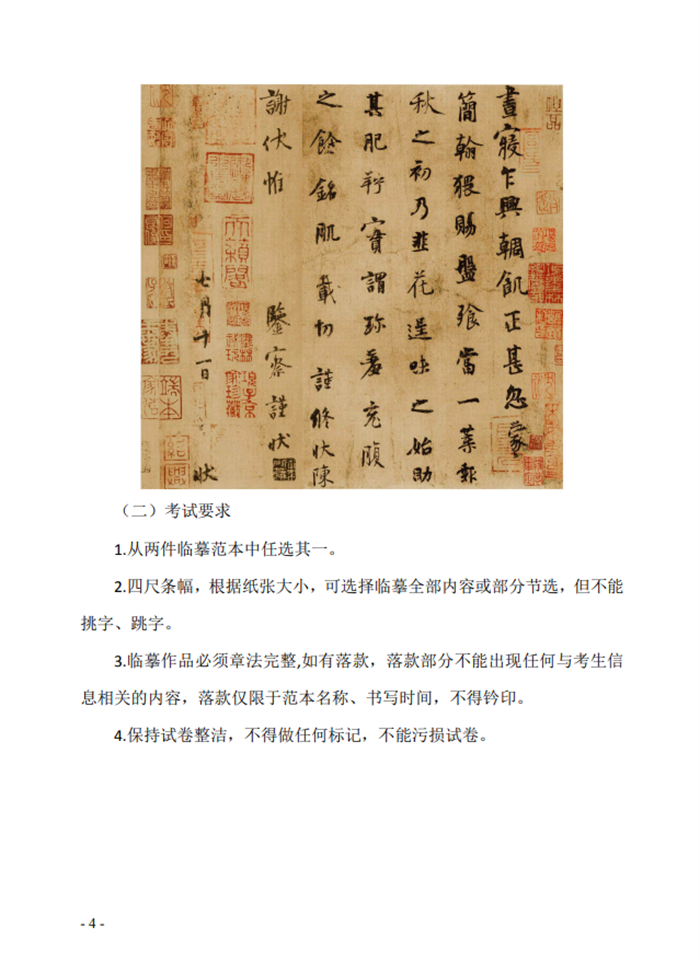 晝寢乍興輖飢正甚忽蒙
簡翰猥賜盤飧當一葉報
秋之初乃韭花逞味之始助
其肥羜實謂珍羞充腹
之餘銘肌載切謹修狀陳
謝伏惟 鑒察謹狀
七月十一日 狀
（二）考试要求
1.从两件临摹范本中任选其一。
2.四尺条幅，根据纸张大小，可选择临摹全部内容或部分节选，但不能
挑字、跳字。
3.临摹作品必须章法完整,如有落款，落款部分不能出现任何与考生信
息相关的内容，落款仅限于范本名称、书写时间，不得钤印。
4.保持试卷整洁，不得做任何标记，不能污损试卷。
- 4 -